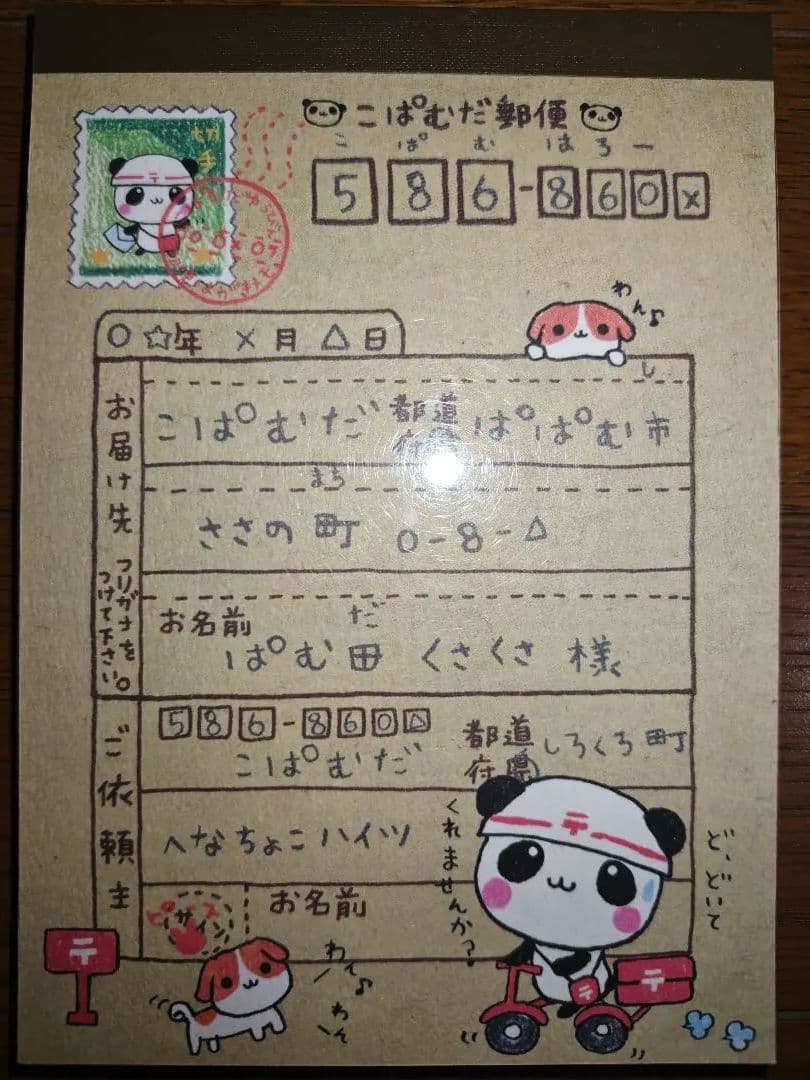 こぱむだ郵便
こ ぱ む はろー
586-860×
切手
〒
わん♪
○☆年 ×月 △日
お届け先
フリガナをつけて下さい。
し
こぱむだ 都道府県 ぱぱむ市
まち
ささの町 0-8-△
お名前
だ
ぱむ田 くさくさ 様
ご依頼主
586-860△
こぱむだ 都道府県 しろくろ町
へなちょこハイツ
サイン
お名前
くれませんか?
ど、どいて
〒
〒
〒
わん♪
わん